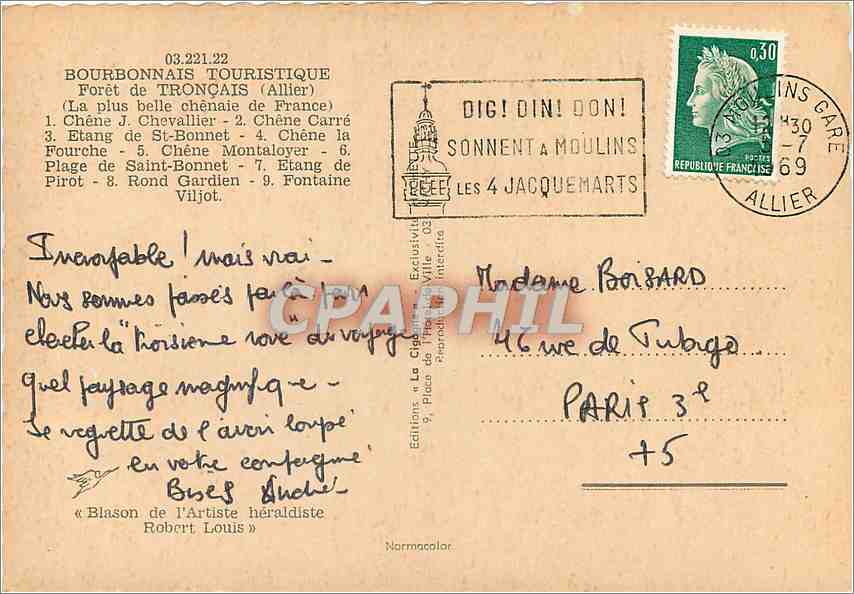 03.221.22
BOURBONNAIS TOURISTIQUE
Forêt de TRONÇAIS (Allier)
(La plus belle chênaie de France)
1. Chêne J. Chevallier - 2. Chêne Carré
3. Etang de St-Bonnet - 4. Chêne la
Fourche - 5. Chêne Montaloyer - 6.
Plage de Saint-Bonnet - 7. Etang de
Pirot - 8. Rond Gardien - 9. Fontaine
Viljot.
Incroyable ! mais vrai -
Nous sommes passés par là pour
chercher la "troisième roue" du voyage
Quel paysage magnifique -
Je regrette de l'avoir loupé
en votre compagnie
Bises André -
« Blason de l'Artiste héraldiste
Robert Louis »
Editions « La Cigogne » - Exclusivité
9, Place de l'Hôtel de Ville - 03
Reproduction interdite
Normacolor
DIG! DIN! DON!
SONNENT A MOULINS
LES 4 JACQUEMARTS
0,30
POSTES
REPUBLIQUE FRANÇAISE
03 MOULINS GARE
H30
-7
69
ALLIER
Madame BOISARD
46 rue de Turbigo
PARIS 3e
75
CPAPHIL